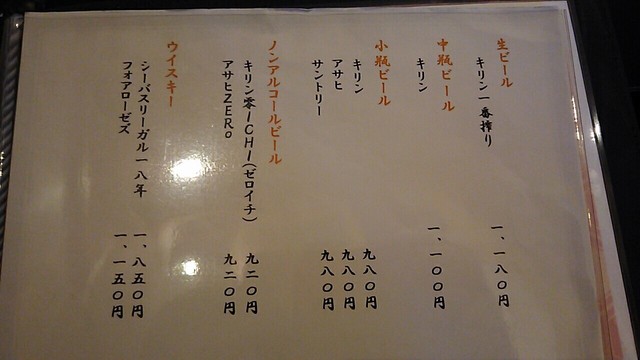 生ビール
キリン一番搾り 一、一八〇円
中瓶ビール
キリン 一、一〇〇円
小瓶ビール
キリン 九八〇円
アサヒ 九八〇円
サントリー 九八〇円
ノンアルコールビール
キリン零ICHI(ゼロイチ) 九二〇円
アサヒZERO 九二〇円
ウイスキー
シーバスリーガル一八年 一、八五〇円
フォアローゼズ 一、一五〇円